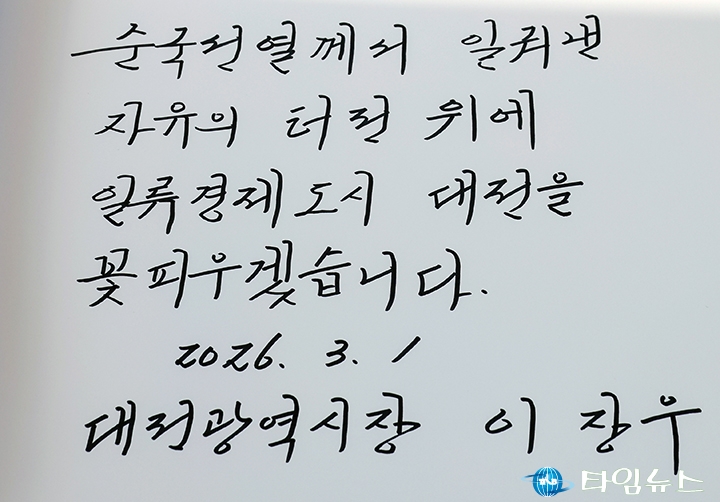 순국선열께서 일궈낸
자유의 터전 위에
일류경제도시 대전을
꽃피우겠습니다.
2026. 3. 1
대전광역시장 이장우
타임뉴스